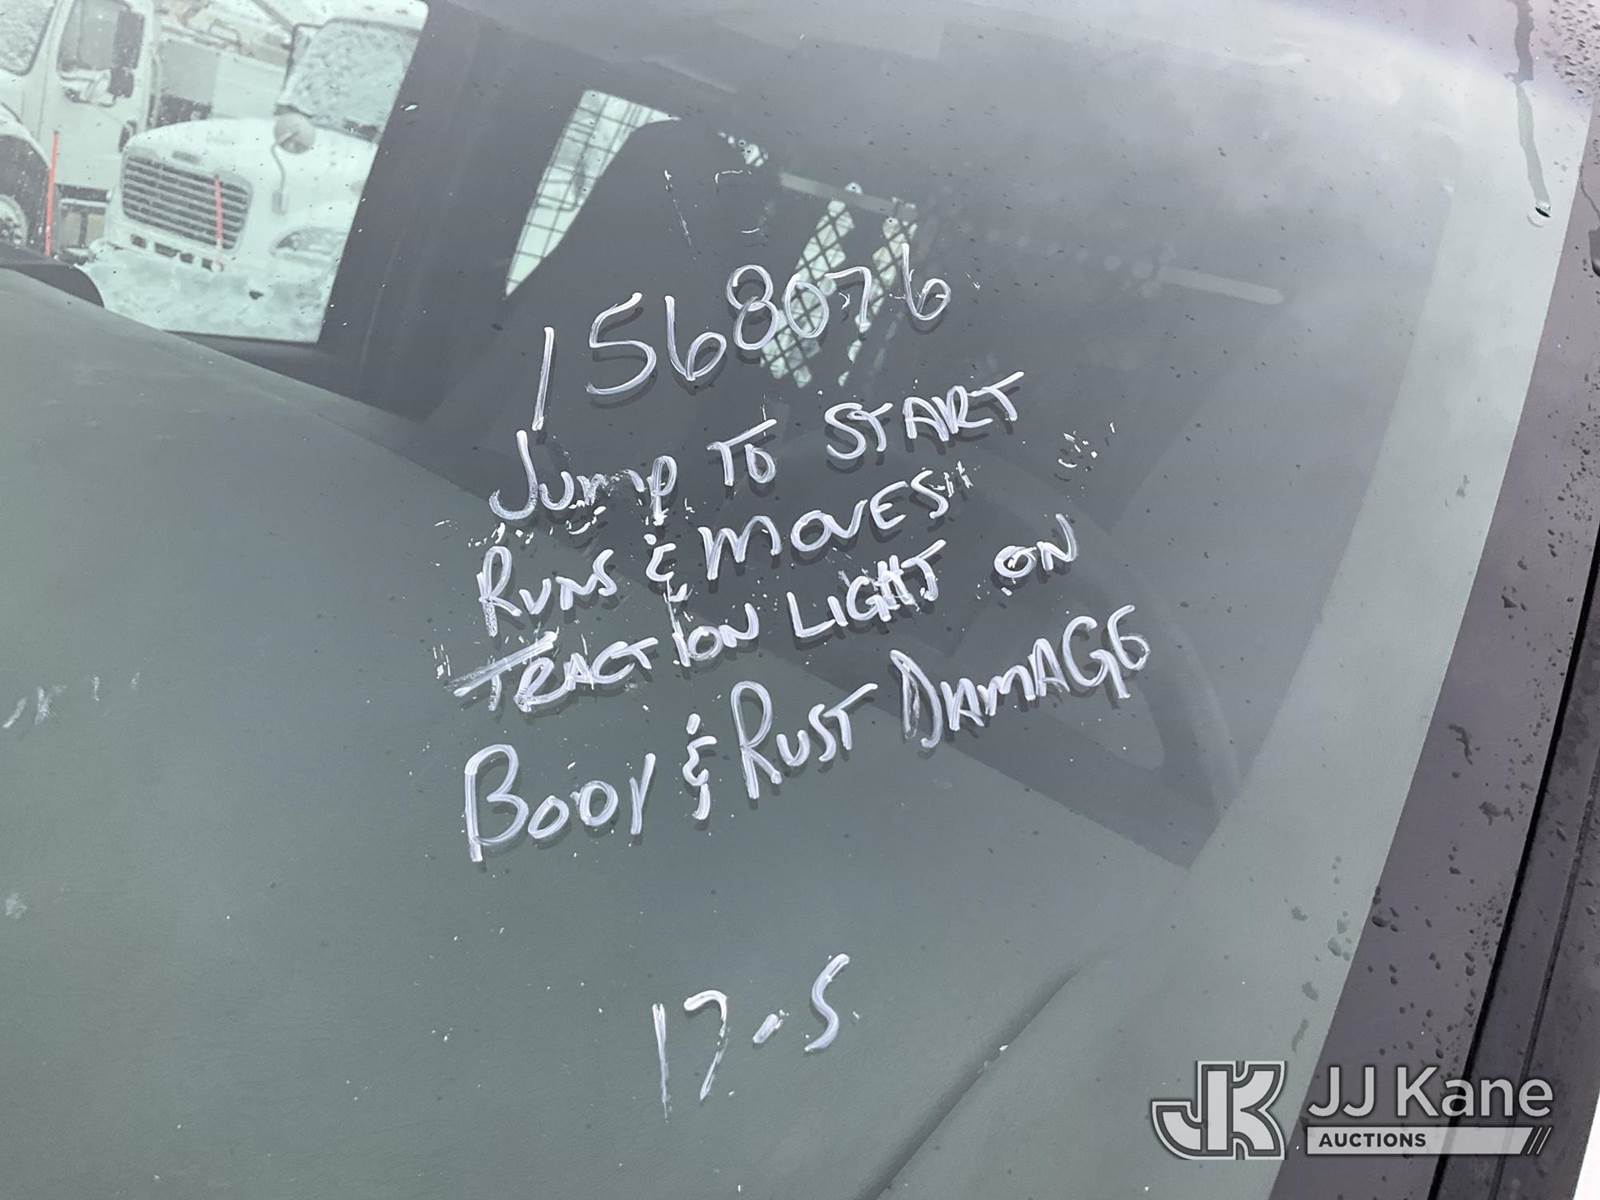 1568076
Jump TO START
RUNS & MOVES
TRACTION LIGHT ON
BODY & RUST DAMAGE
17-5
JK JJ Kane
AUCTIONS